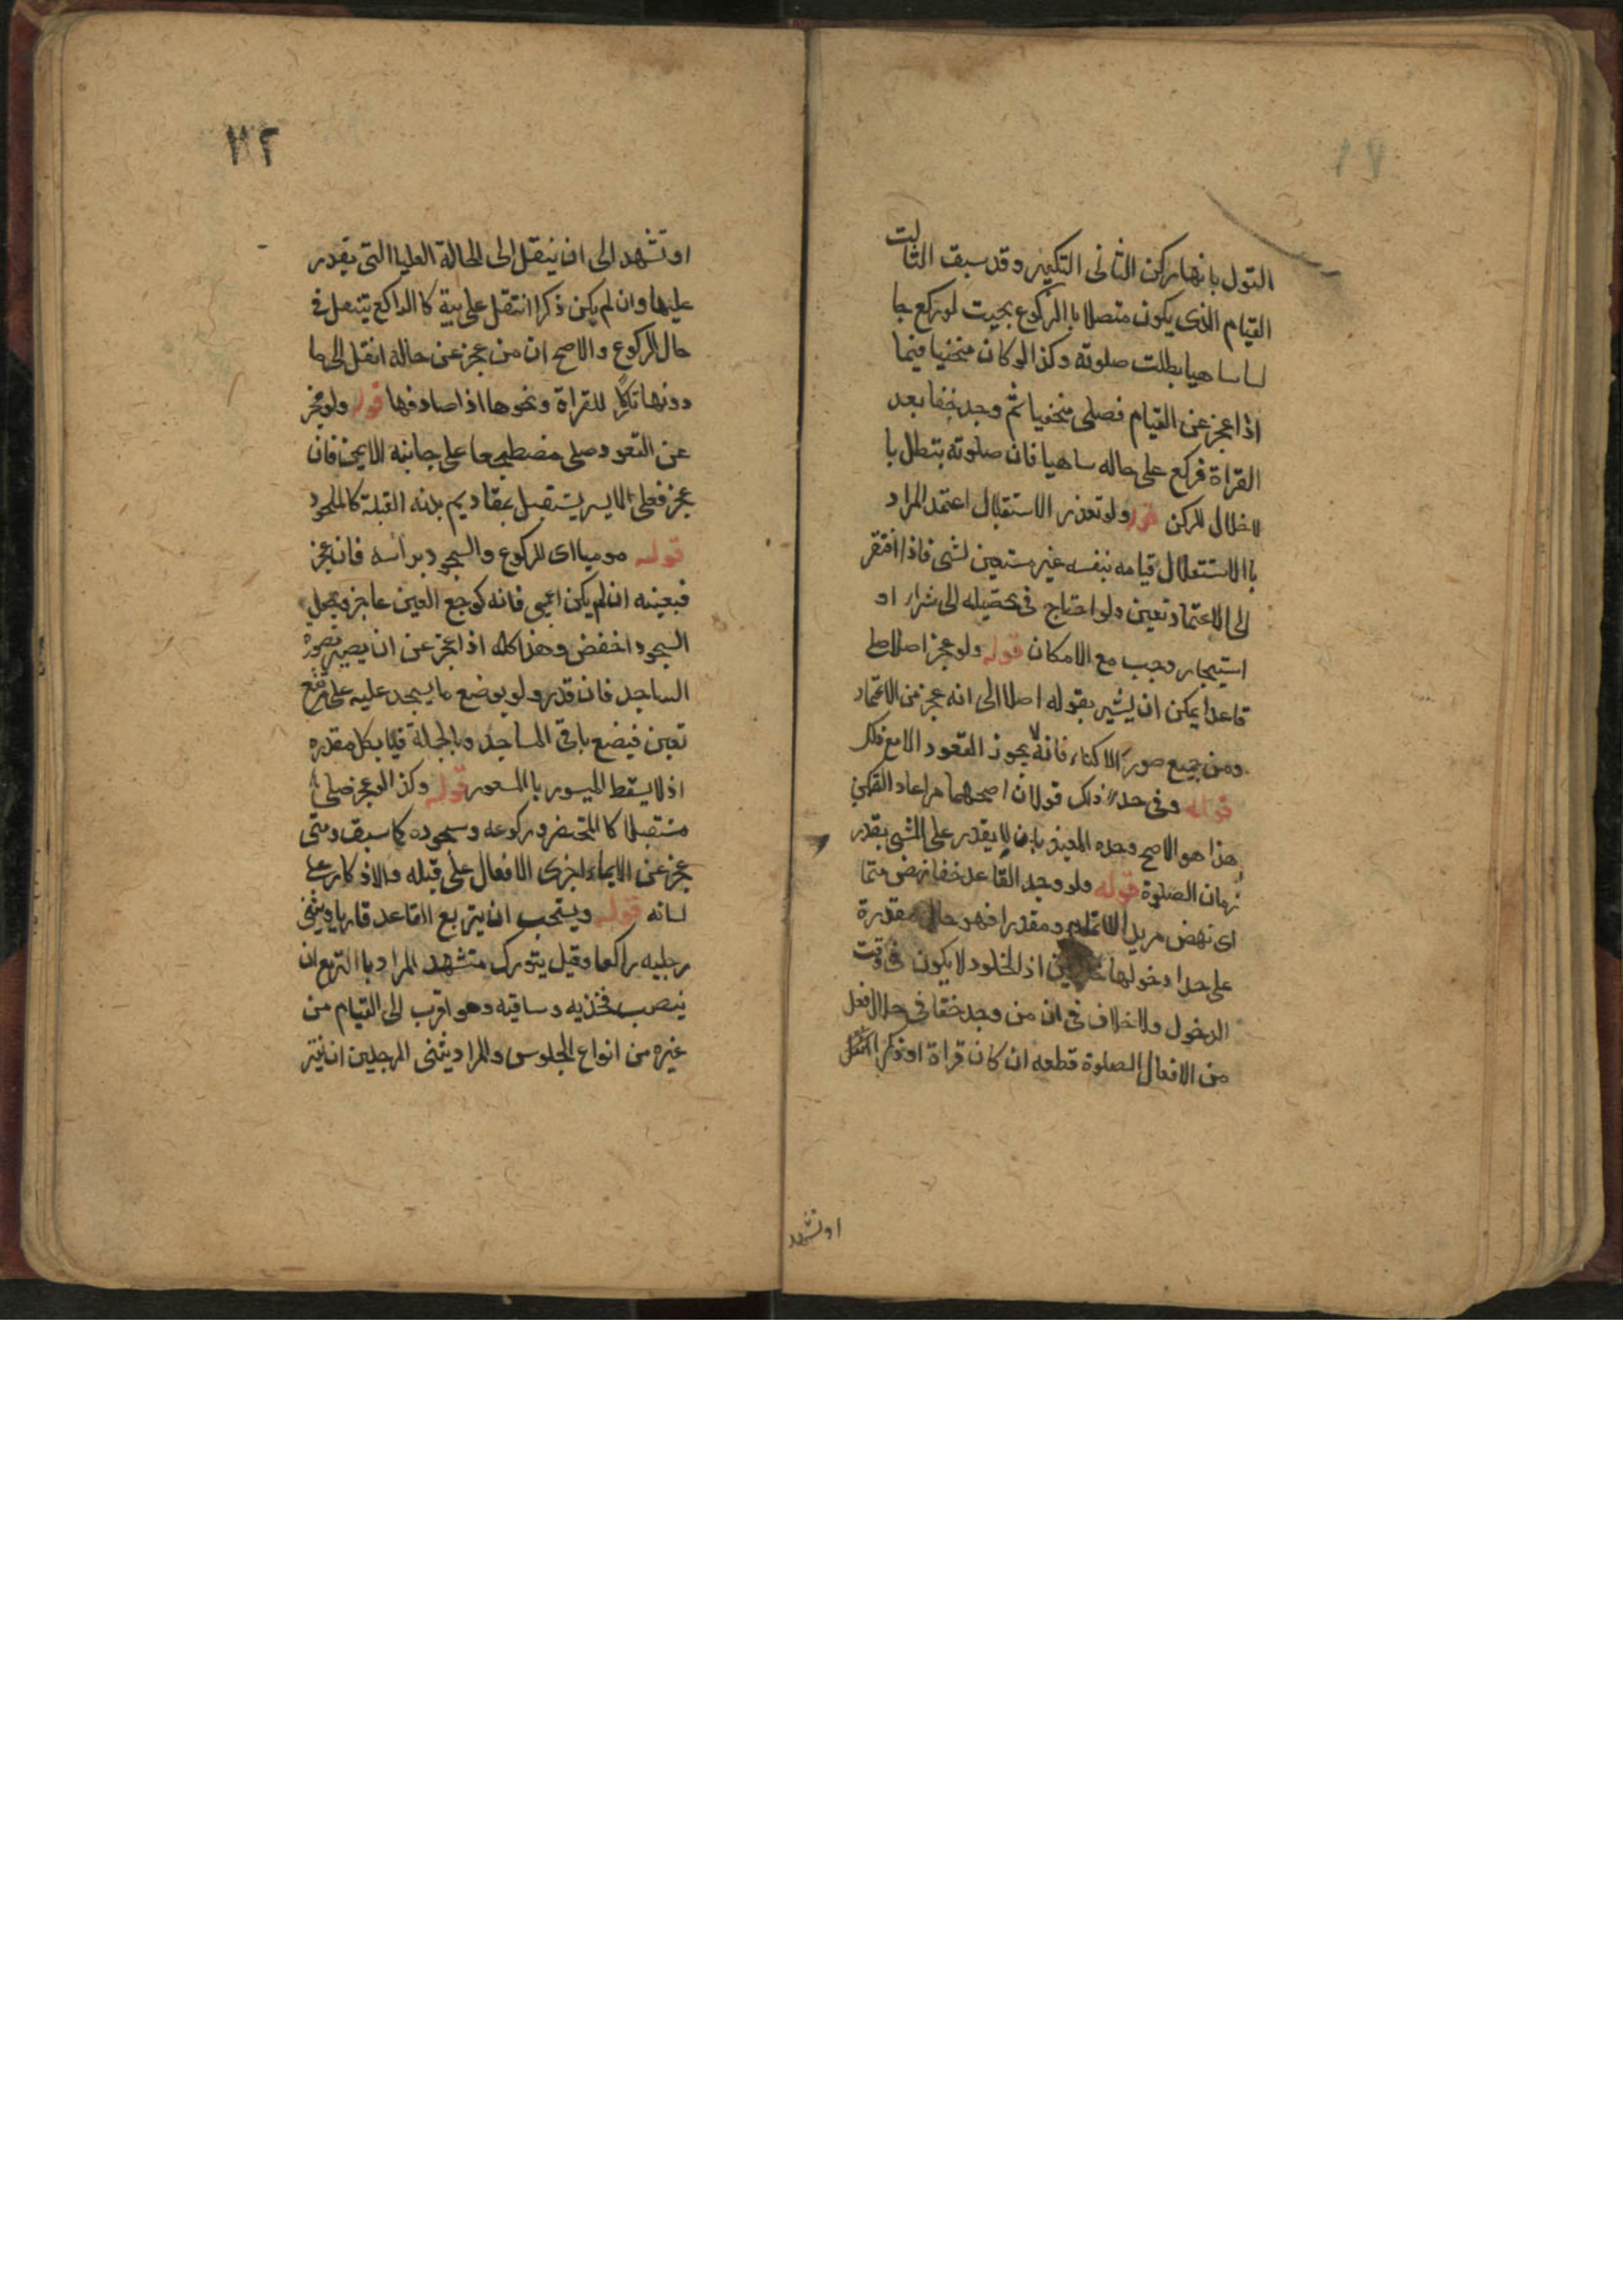 القول بانها ركن الثانى التكبير وقد سبق الثالث
القيام الذى يكون متصلا باالركوع بحيث لو ركع جا
لسا ساهيا بطلت صلوته وكذا لو كان منحنيا فيما
اذا عجز عن القيام فصلى منحنيا ثم وجد خفا بعد
القراة فركع على حاله ساهيا فان صلوته تبطل با
لاخلال للركن قوله ولو تعذر الاستقبال اعتمد المراد
باالاستقلال قيامه بنفسه غير مستعين لشى فاذا افتقر
الى الاعتماد تعين ولو احتاج فى تحصيله الى شراء او
استيجار وجب مع الامكان قوله ولو عجز اصلا صلى
قاعدا يمكن ان يشير بقوله اصلا الى انه عجز من الاعتماد
ومن جميع صور الاكتاء فانه لا يجوز القعود الا مع ذلك
قوله وفى حد ذلك قولان اصحهما مراعاة التمكن
هذا هو الاصح وحده المفيد بان لا يقدر على المشى بقدر
زمان الصلوة قوله ولو وجد القاعد خفا نهض متما
اى نهض مريدا الاتمام ومقدرا فهو حال مقدرة
على حد ادخولها خالدين اذ الخلود لا يكون فى وقت
الدخول ولا خلاف فى ان من وجد خفا فى حال فعل
من الافعال الصلوة قطعه ان كان قراة او ذكرا انتقل
اوتشهد
٣٢
اوتشهد الى ان ينتقل الى الحالة العليا التى يقدر
عليها وان لم يكن ذكرا انتقل على بية كا الراكع ينتقل فى
حال الركوع والاصح ان من عجز عن حالة انتقل الى ما
دونها تاركا للقراة ونحوها اذا صادفها قوله ولو عجز
عن القعود صلى مضطجعا على جانبه الايمن فان
عجز فعلى الايسر يستقبل بمقاديم بدنه القبلة كالملحود
قوله موميا اى للركوع والسجود برأسه فان عجز
فبعينه ان لم يكن اعمى فانه كوجع العين عاجز ويجعل
السجود اخفض وهذا كله اذا عجز عن ان يصير بصورة
الساجد فان قدر ولو بوضع ما يسجد عليه على مرتفع
تعين فيضع باقى المساجد وبالجملة فيلا بكل مقدوره
اذ لا يسقط الميسور باالمعسور قوله وكذا لو عجز صلى
مستقبلا كا المحتضر وركوعه وسجوده كما سبق ومتى
عجز عن الايماء اجرى الافعال على قبله والاذكار على
لسانه قوله ويستحب ان يتربع القاعد قاريا ويثنى
رجليه راكعا وقيل يتورك متشهد المراد با التربع ان
ينصب فخذيه وساقيه وهو اقرب الى القيام من
غيره من انواع الجلوس والمراد يثنى الرجلين ان يفتر